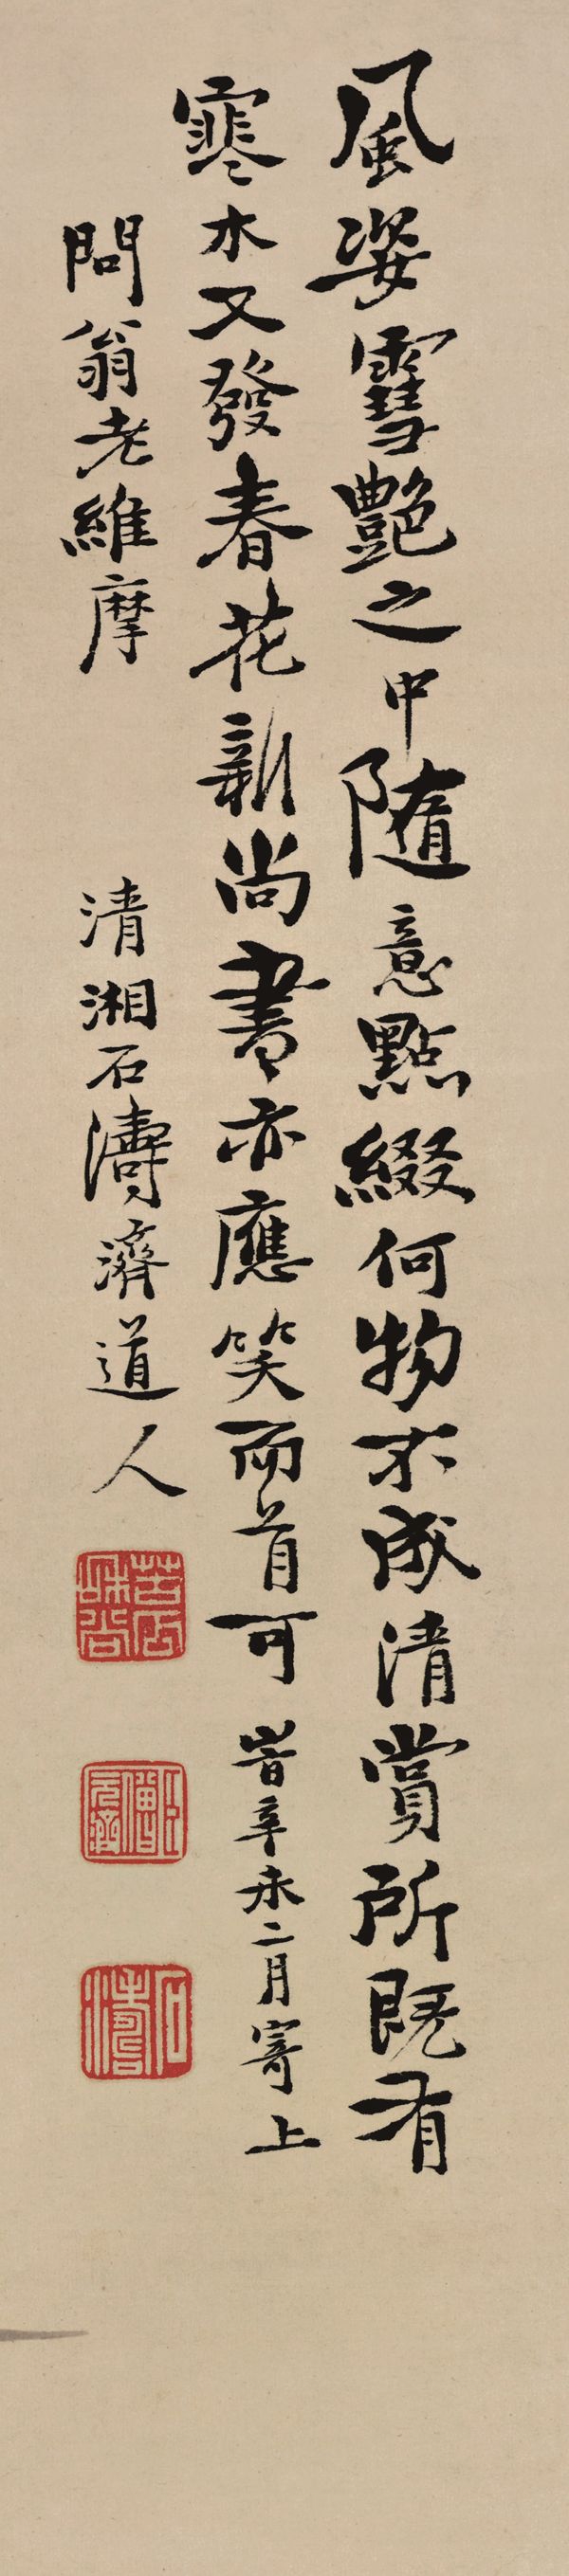 風姿雪艷之中隨意點綴何物不成清賞所既有
寒木又發春花新尚書亦應笑而首可 旹辛未二月寄上
問翁老維摩 清湘石濤濟道人
苦瓜和尚
臣僧元濟
石濤